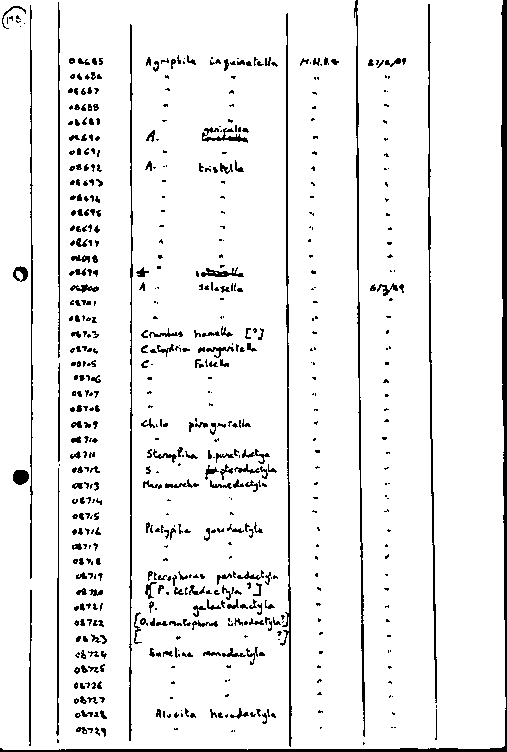 198
08685 Agriphila inquinatella M.N.H.S 27/2/89
08686 " " " "
08687 " " " "
08688 " " " "
08689 " " " "
08690 A. geniculea " "
08691 " " " "
08692 A. tristella " "
08693 " " " "
08694 " " " "
08695 " " " "
08696 " " " "
08697 " " " "
08698 " " " "
08699 " "
08700 A selasella " 6/3/89
08701 " " " "
08702 " " " "
08703 Crambus hamella [?] " "
08704 Catoptria margaritella " "
08705 C. falsella " "
08706 " " " "
08707 " " " "
08708 " " " "
08709 Chilo phragmitella " "
08710 " " " "
08711 Stenoptilia bipunctidactyla " "
08712 S. pterodactyla " "
08713 Marasmarcha lunaedactyla " "
08714 " " " "
08715 " " " "
08716 Platyptilia gonodactyla " "
08717 " " " "
08718 " " " "
08719 Pterophorus pentadactyla " "
08720 [P. tetradactyla ?] " "
08721 P. galactodactyla " "
08722 [O.daematophorus lithodactyla?] " "
08723 [ " " ?] " "
08724 Emmelina monodactyla " "
08725 " " " "
08726 " " " "
08727 " " " "
08728 Alucita hexadactyla " "
08729 " " " "